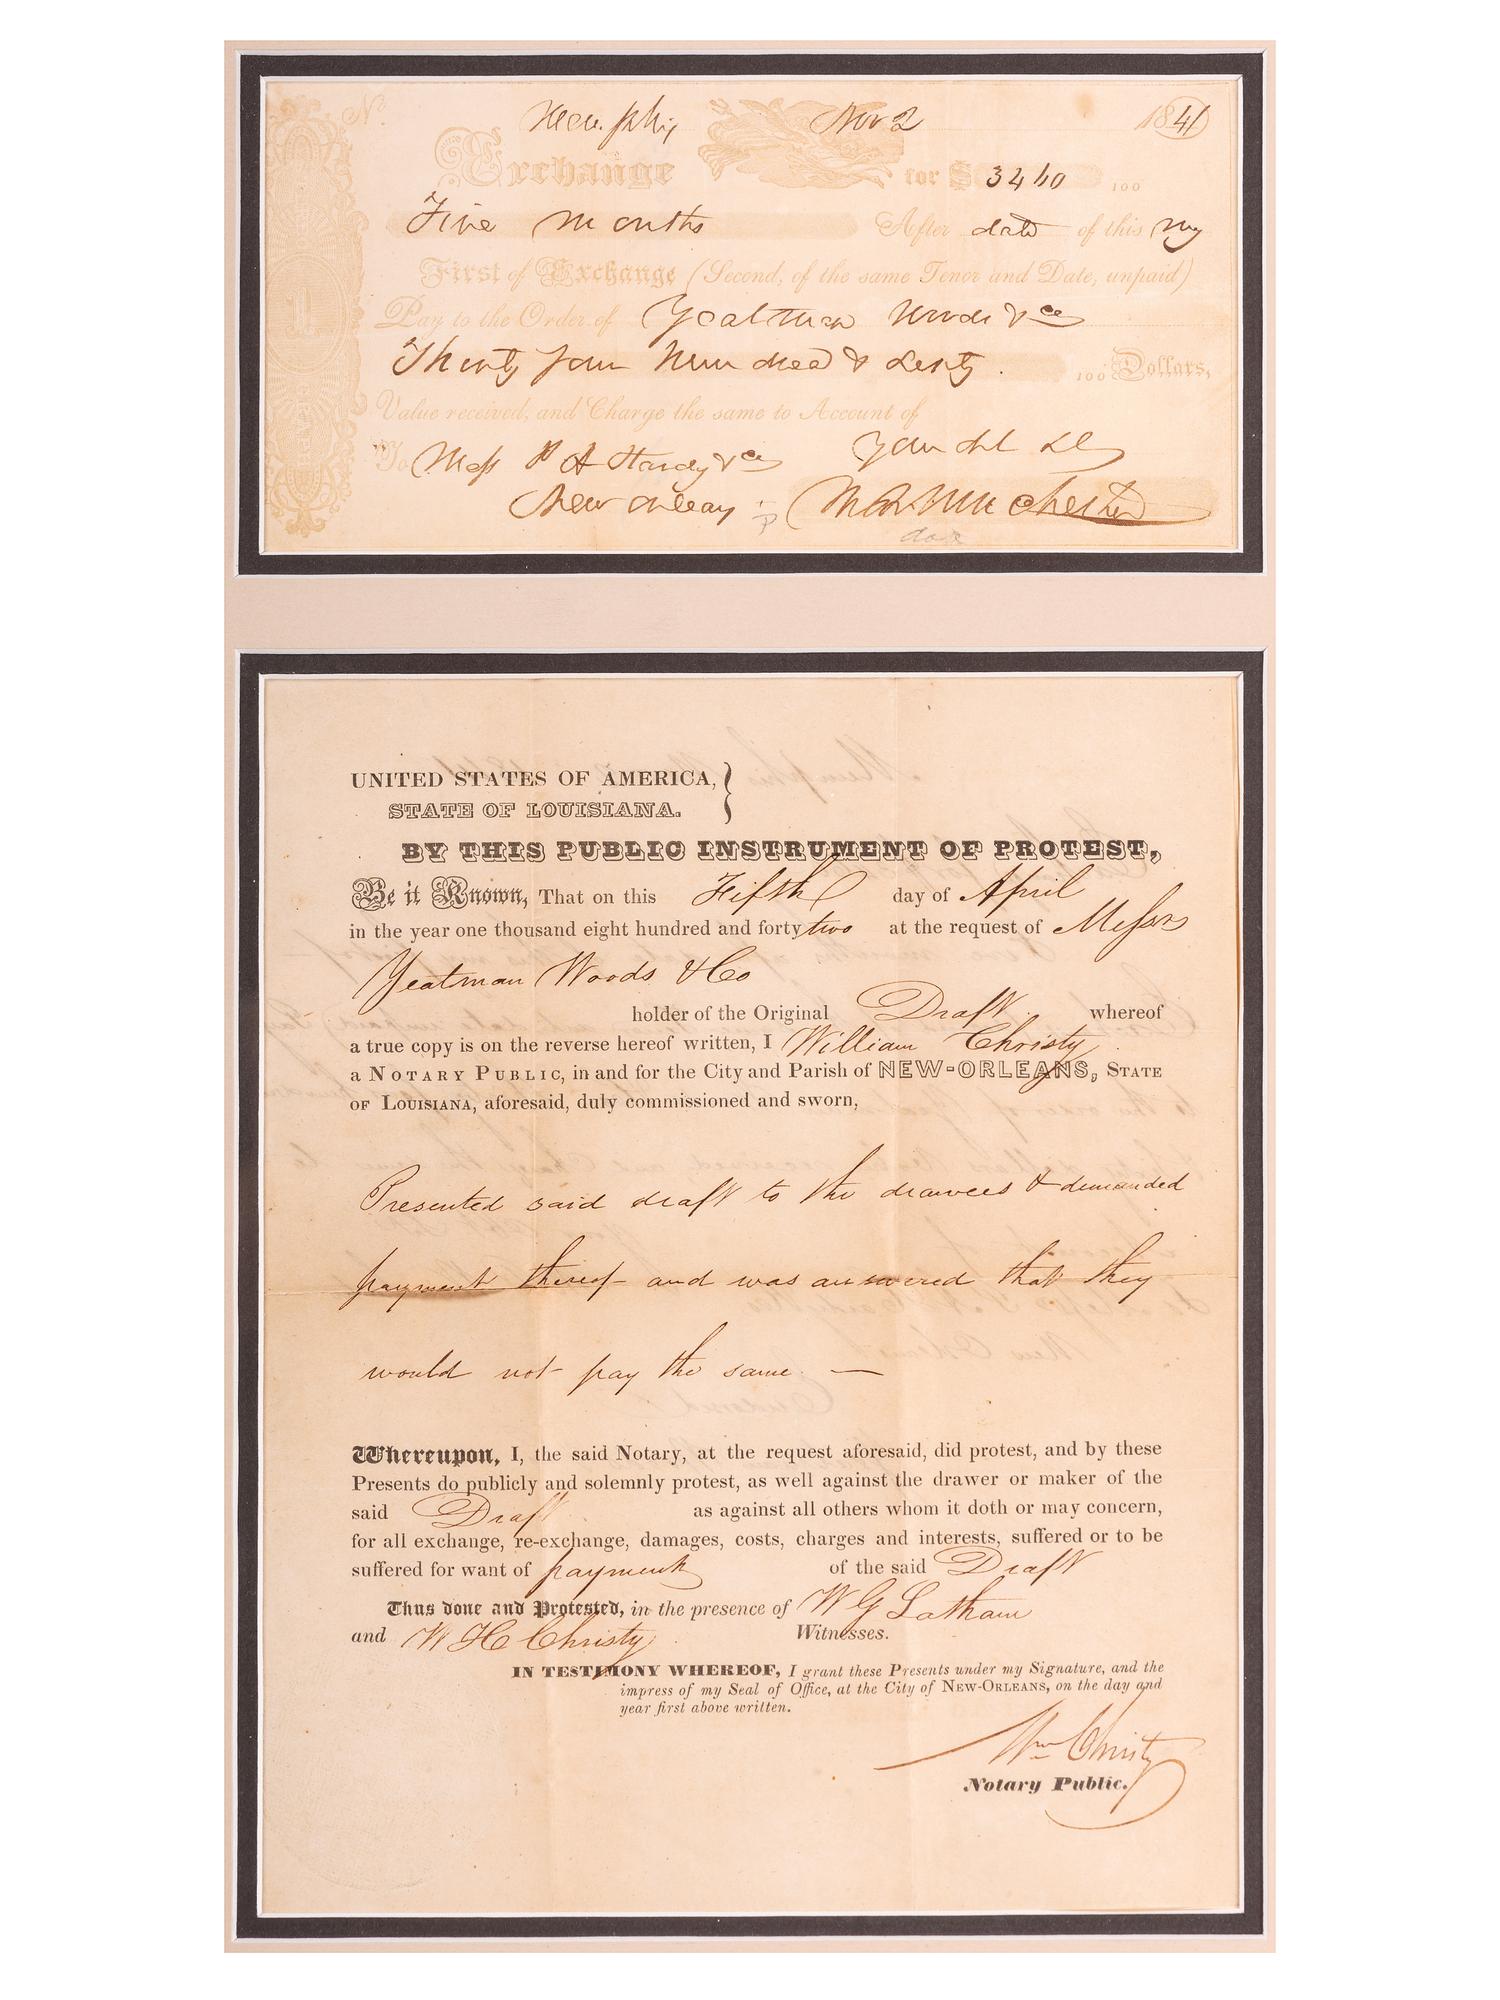 No. Memphis Nov 2 1841
Exchange for $ 3460 100
Five months After date of this my
First of Exchange (Second, of the same Tenor and Date, unpaid)
Pay to the Order of Yeatman Woods & Co
Thirty four Hundred & Sixty 100 Dollars,
Value received, and Charge the same to Account of
To Mess A Hardy & Co
New Orleans
UNITED STATES OF AMERICA,
STATE OF LOUISIANA.
BY THIS PUBLIC INSTRUMENT OF PROTEST,
Be it Known, That on this Fifth day of April
in the year one thousand eight hundred and forty two at the request of Messrs
Yeatman Woods & Co
holder of the Original Draft whereof
a true copy is on the reverse hereof written, I William Christy
a NOTARY PUBLIC, in and for the City and Parish of NEW-ORLEANS, STATE
OF LOUISIANA, aforesaid, duly commissioned and sworn,
Presented said draft to the drawees & demanded
payment thereof and was answered that they
would not pay the same. —
Whereupon, I, the said Notary, at the request aforesaid, did protest, and by these
Presents do publicly and solemnly protest, as well against the drawer or maker of the
said Draft as against all others whom it doth or may concern,
for all exchange, re-exchange, damages, costs, charges and interests, suffered or to be
suffered for want of payment of the said Draft
Thus done and Protested, in the presence of W G Latham
and W H Christy Witnesses.
IN TESTIMONY WHEREOF, I grant these Presents under my Signature, and the
impress of my Seal of Office, at the City of NEW-ORLEANS, on the day and
year first above written.
Wm Christy
Notary Public.